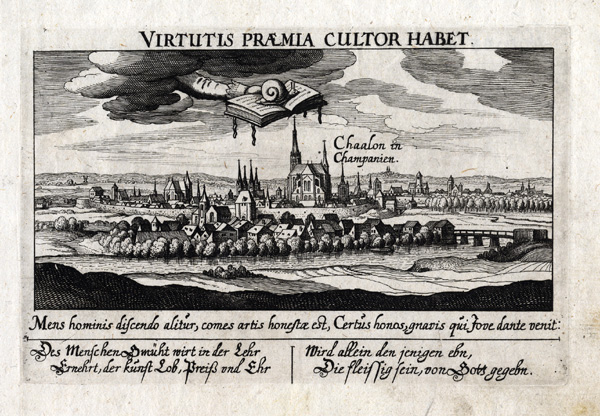 VIRTUTIS PRÆMIA CULTOR HABET.
Chaalon in
Champanien.
Mens hominis discendo alitur, comes artis honestæ est, Certus honos, gnavis qui Jove dante venit:
Des Menschen Gmüht wirt in der Lehr
Ernehrt, der künst Lob, Preiß vnd Ehr
Wird allein den jenigen ebn,
Die fleissig sein, von Gott gegebn.